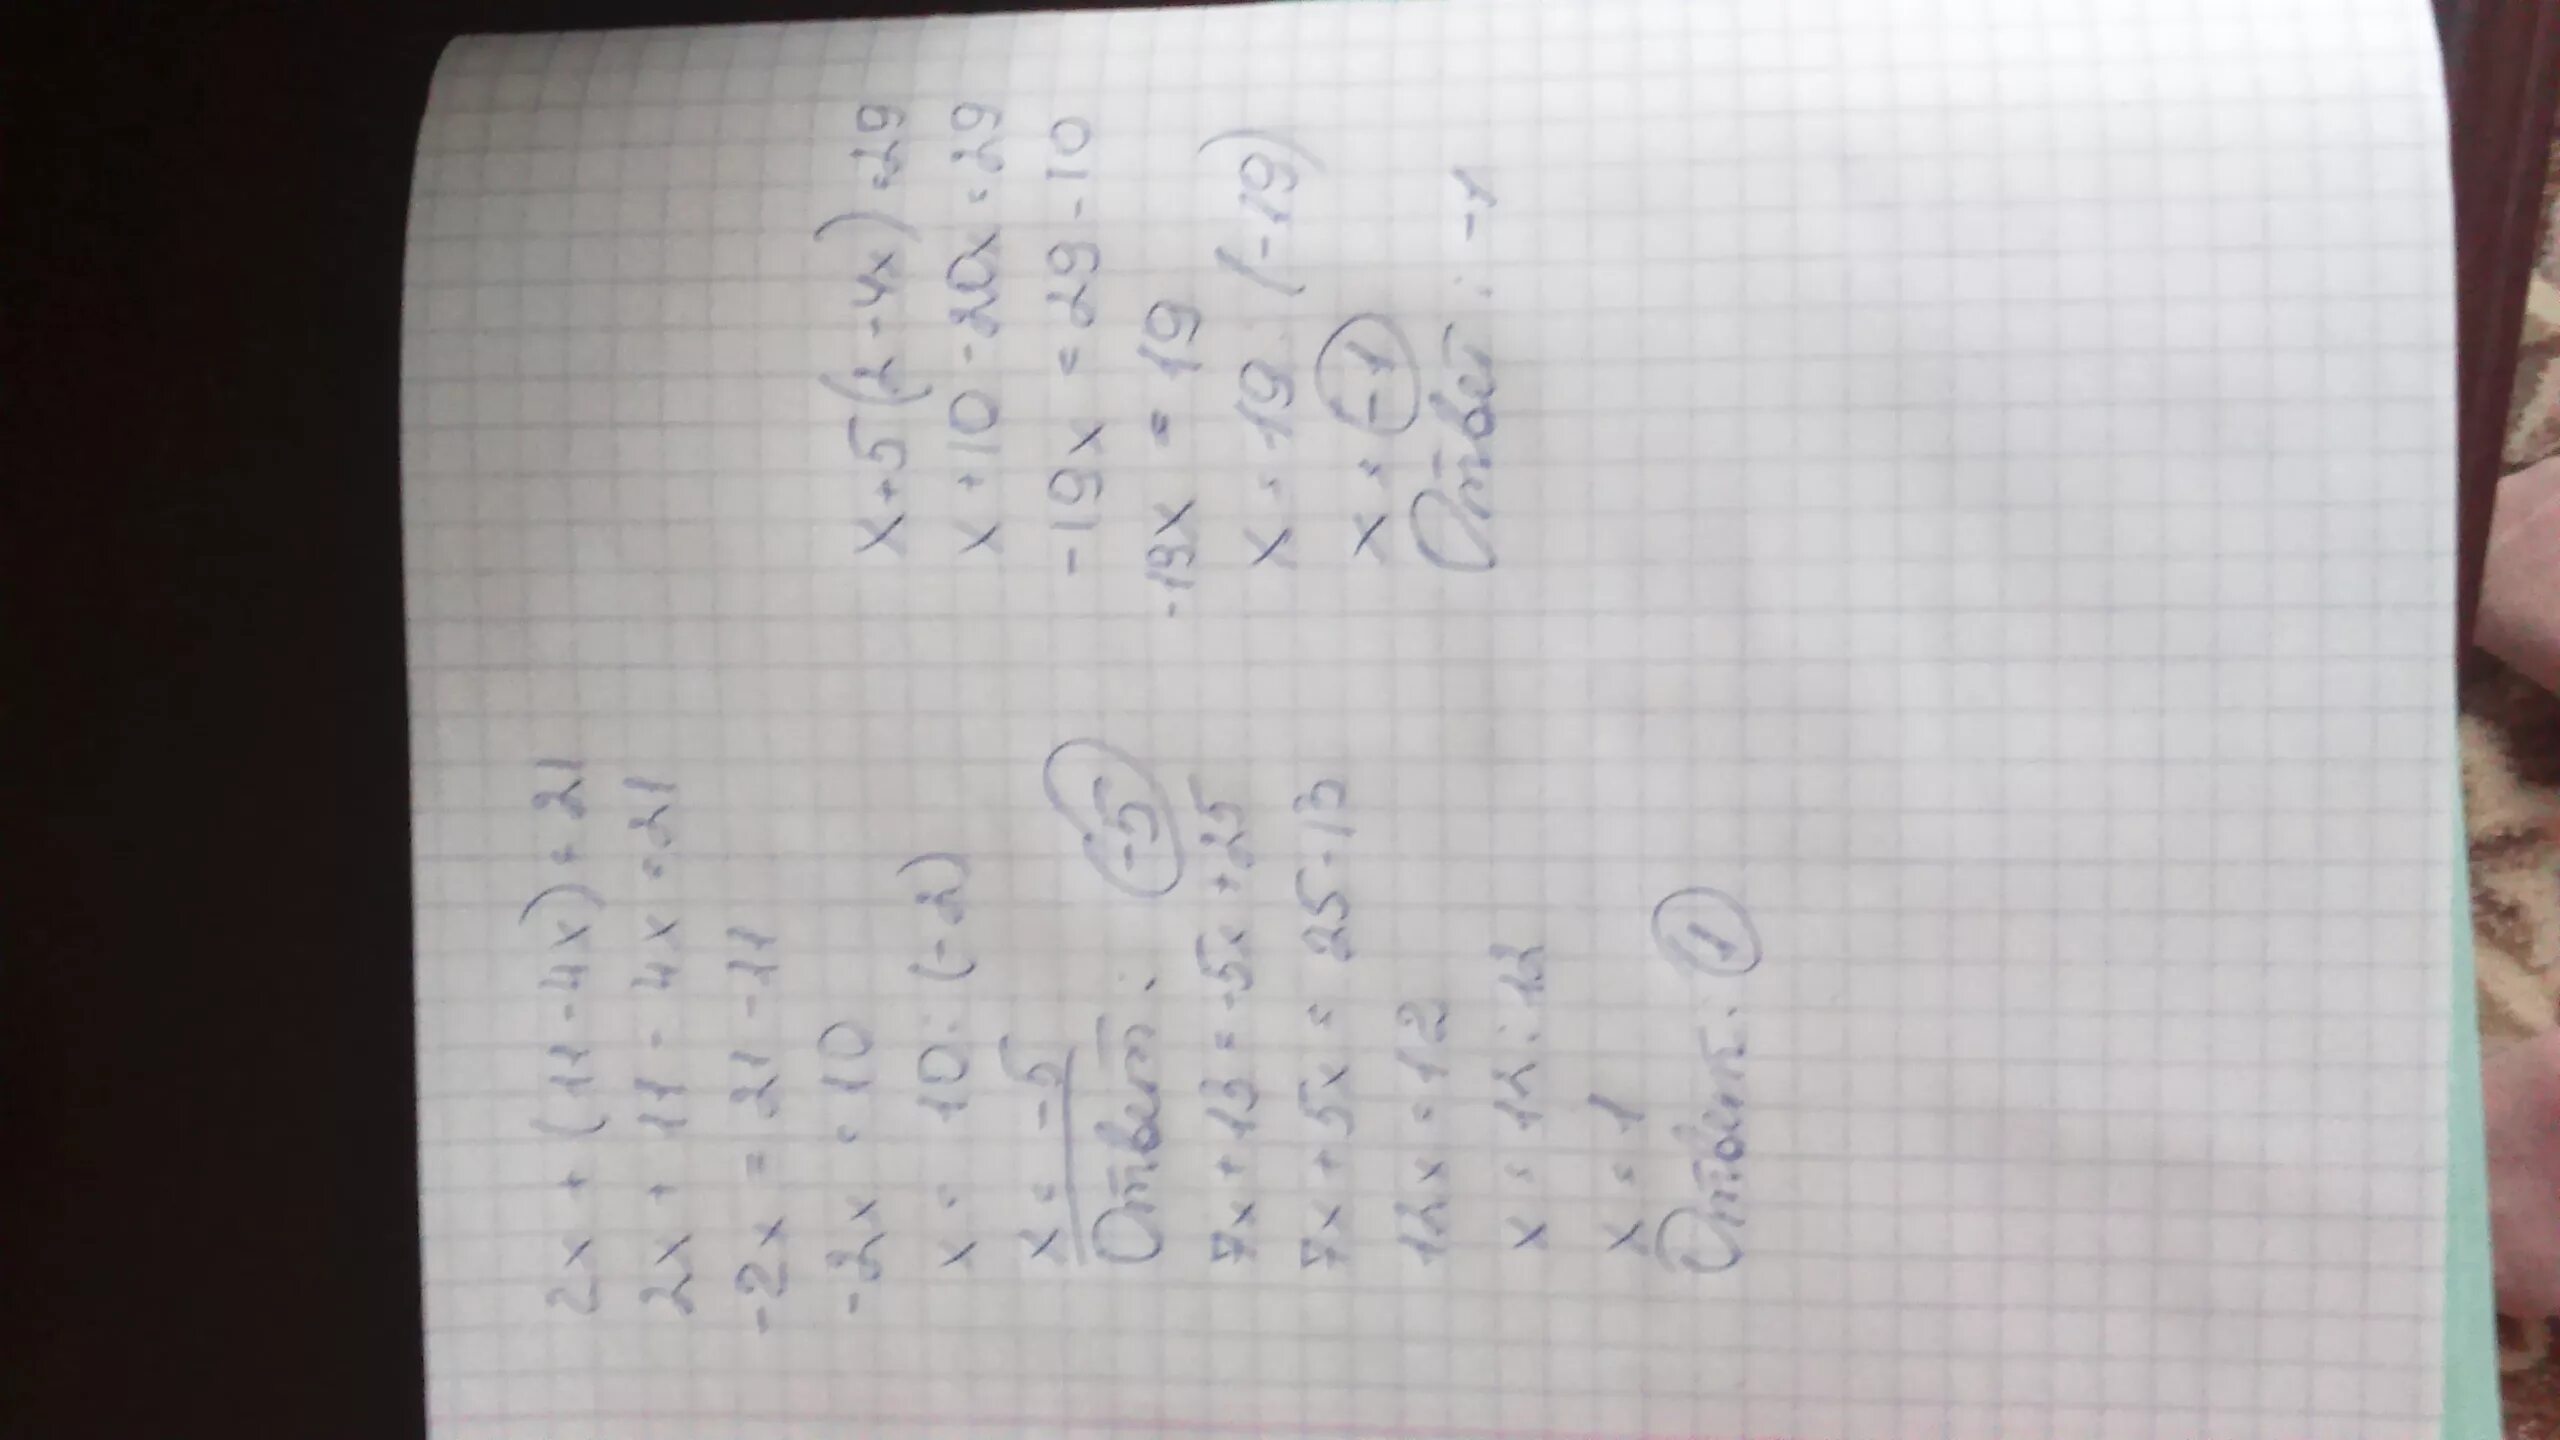 2x + (11 - 4x) = 21
2x + 11 - 4x = 21
-2x = 21 - 11
-2x = 10
x = 10 : (-2)
x = -5
Ответ: -5
7x + 13 = -5x + 25
7x + 5x = 25 - 13
12x = 12
x = 12 : 12
x = 1
Ответ: 1
x + 5(2 - 4x) = 29
x + 10 - 20x = 29
-19x = 29 - 10
-19x = 19
x = 19 : (-19)
x = -1
Ответ: -1